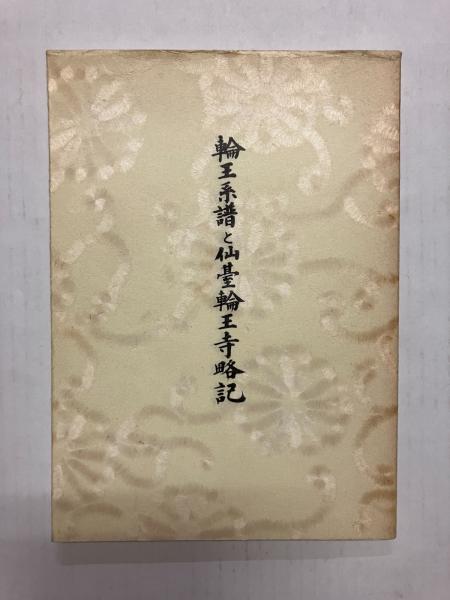 輪王系譜と仙臺輪王寺略記